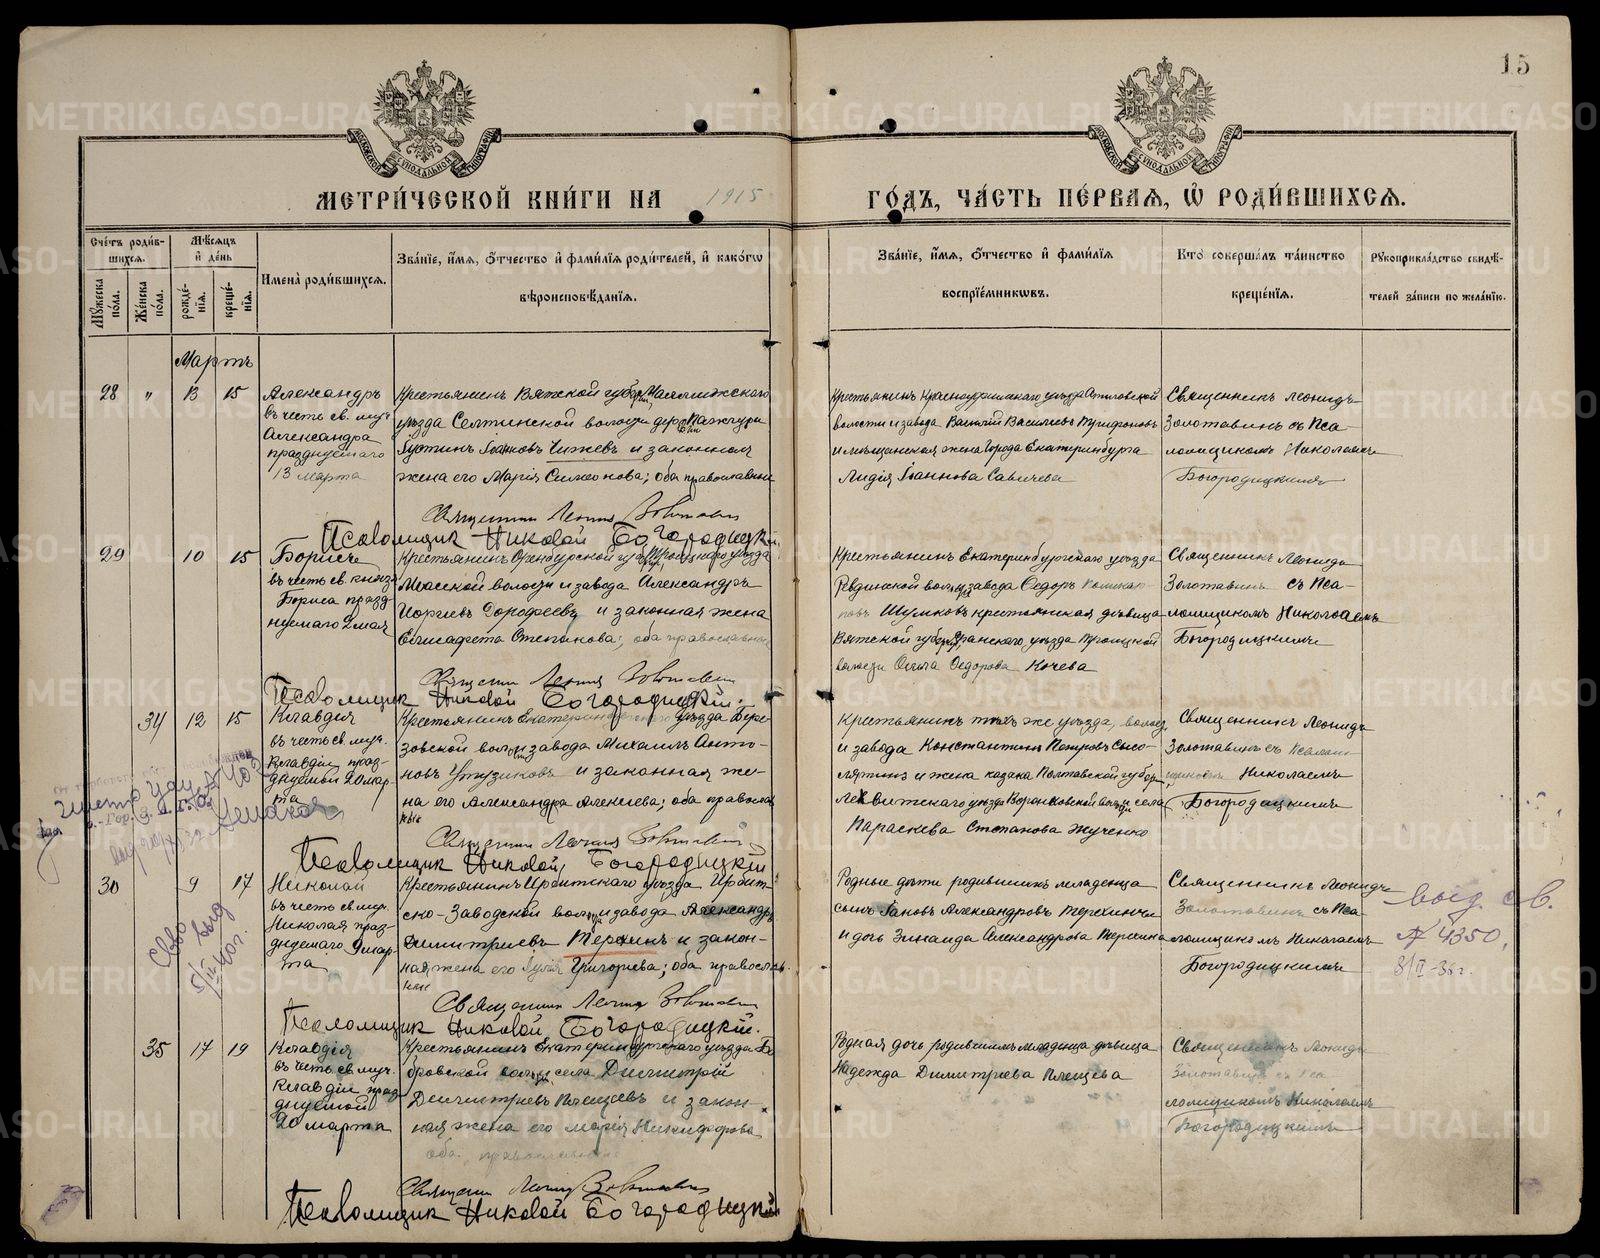 15
МЕТРИ́ЧЕСКОЙ КНИ́ГИ НА 1915 ГО́ДЪ, ЧА́СТЬ ПЕ́РВАѦ, Ѽ РОДИ́ВШИХСѦ.
Сче́тъ роди́в-
шихсѧ.
Мѣ́сѧцъ
и҆ де́нь
Мꙋ́жеска
по́ла.
Же́нска
по́ла.
рожде́-
нїѧ.
креще́-
нїѧ.
И҆мена̀ роди́вшихсѧ.
Зва́нїе, и҆́мѧ, ѻ҆́тчество и҆ фами́лїѧ роди́телей, и҆ како́гѡ
вѣроисповѣ́данїѧ.
Зва́нїе, и҆́мѧ, ѻ҆́тчество и҆ фами́лїѧ
воспрїе́мникѡвъ.
Кто̀ соверша́лъ та́инство
креще́нїѧ.
Рꙋкоприкла́дство свидѣ́-
телей за́писи по жела́нїю.
Мартъ
28 " 13 15
Александръ
въ честь св. муч.
Александра
празднуемаго
13 марта
Крестьянинъ Вятской губерніи, Малмыжскаго
уѣзда Селтинской волости дер.
Іустинъ Іоанновъ Чижевъ и законная
жена его Марія Симеонова; оба православные
Крестьянинъ Красноуфимскаго уѣзда Ачитовской
волости и завода Василій Васильевъ Трифоновъ
и мѣщанская жена города Екатеринбурга
Лидія Іоаннова Савичева
Священникъ Леонидъ
Золотавинъ съ Пса-
ломщикомъ Николаемъ
Богородицкимъ
Священникъ Леонидъ Золотавинъ
Псаломщикъ Николай Богородицкій.
29 10 15
Борисъ
въ честь св. князя
Бориса празд-
нуемаго 2 мая
Крестьянинъ Оренбургской губ. Троицкаго уѣзда
Міасской волости и завода Александръ
Георгіевъ Дорофеевъ и законная жена
Елисавета Степанова; оба православные
Крестьянинъ Екатеринбургскаго уѣзда
Ревдинской волости и завода Ѳедоръ
Шумковъ крестьянская дѣвица
Вятской губерніи, уѣзда Троицкой
волости Ольга Ѳедорова Кочева
Священникъ Леонидъ
Золотавинъ съ Пса-
ломщикомъ Николаемъ
Богородицкимъ
Священникъ Леонидъ Золотавинъ
Псаломщикъ Николай Богородицкій.
34 12 15
Клавдія
въ честь св. муч.
Клавдіи праз-
днуемой 20 мар-
та
Крестьянинъ Екатеринбургскаго уѣзда Бере-
зовской волости и завода Михаилъ Анто-
новъ и законная же-
на его Александра Алексіева; оба православ-
ные
Крестьянинъ тѣхъ же уѣзда, волости
и завода Константинъ Петровъ Сысо-
лятинъ и жена казака Полтавской губер.
уѣзда волости села
Параскева Степанова Жученко
Священникъ Леонидъ
Золотавинъ съ Псалом-
щикомъ Николаемъ
Богородицкимъ
Священникъ Леонидъ Золотавинъ
Псаломщикъ Николай Богородицкій
30 9 17
Николай
въ честь св. муч.
Николая праз-
днуемаго 9 мар-
та
Крестьянинъ Ирбитскаго уѣзда Ирбит-
ско-Заводской волости и завода Александръ
Димитріевъ Терехинъ и закон-
ная жена его Григорьева; оба православ-
ные
Родные дѣти родившихъ младенца
сынъ Александровъ Терехинъ
и дочь Зинаида Александрова Терехина
Священникъ Леонидъ
Золотавинъ съ Пса-
ломщикомъ Николаемъ
Богородицкимъ
выд. св.
№ 4350,
8/II-36 г.
Священникъ Леонидъ Золотавинъ
Псаломщикъ Николай Богородицкій.
35 17 19
Клавдія
въ честь св. муч.
Клавдіи праз-
днуемой
20 марта
Крестьянинъ Екатеринбургскаго уѣзда
волости села Димитрій
Димитріевъ Плещевъ и закон-
ная жена его Марія Никифорова
оба православные
Родная дочь родившихъ младенца дѣвица
Надежда Димитріева Плещева
Священникъ Леонидъ
Золотавинъ съ Пса-
ломщикомъ Николаемъ
Богородицкимъ
Священникъ Леонидъ Золотавинъ
Псаломщикъ Николай Богородицкій
METRIKI.GASO-URAL.RU